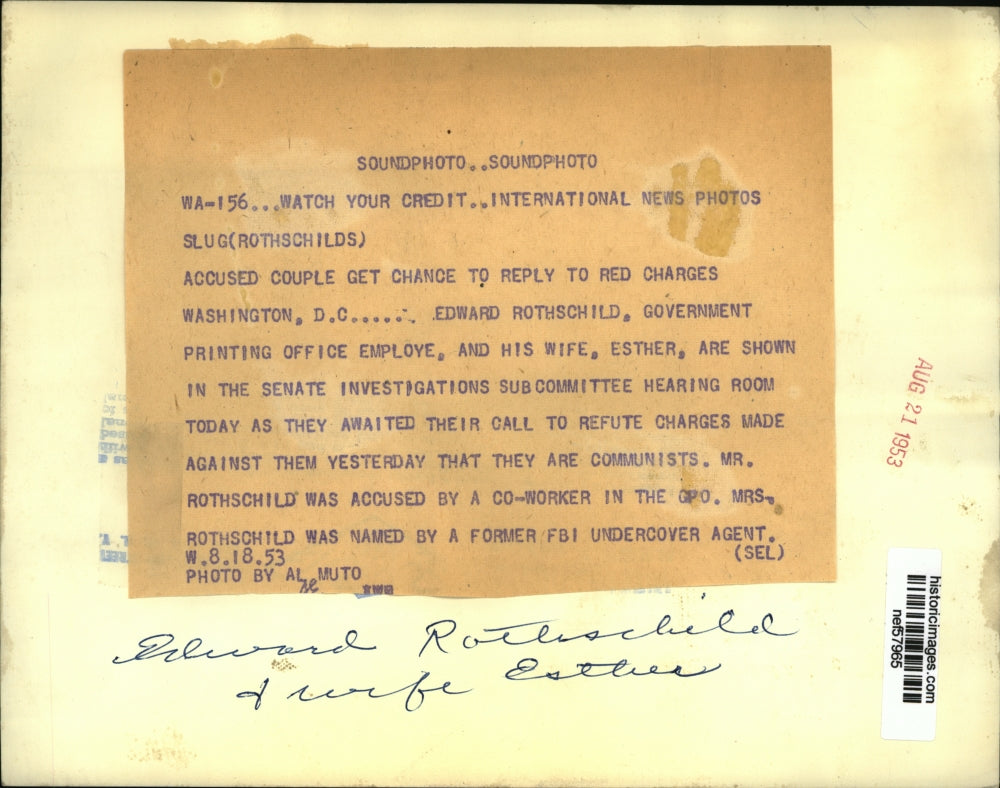 SOUNDPHOTO..SOUNDPHOTO
WA-156...WATCH YOUR CREDIT..INTERNATIONAL NEWS PHOTOS
SLUG(ROTHSCHILDS)
ACCUSED COUPLE GET CHANCE TO REPLY TO RED CHARGES
WASHINGTON, D.C...... EDWARD ROTHSCHILD, GOVERNMENT
PRINTING OFFICE EMPLOYE, AND HIS WIFE, ESTHER, ARE SHOWN
IN THE SENATE INVESTIGATIONS SUBCOMMITTEE HEARING ROOM
TODAY AS THEY AWAITED THEIR CALL TO REFUTE CHARGES MADE
AGAINST THEM YESTERDAY THAT THEY ARE COMMUNISTS. MR.
ROTHSCHILD WAS ACCUSED BY A CO-WORKER IN THE GPO. MRS.
ROTHSCHILD WAS NAMED BY A FORMER FBI UNDERCOVER AGENT.
W.8.18.53 (SEL)
PHOTO BY AL MUTO
Edward Rothschild
& wife Esther
AUG 21 1953
historicimages.com
nef57965